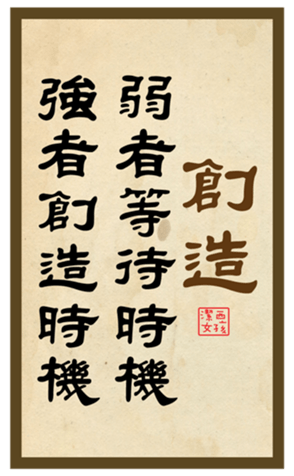 創造
弱者等待時機
強者創造時機
西孩
潔女